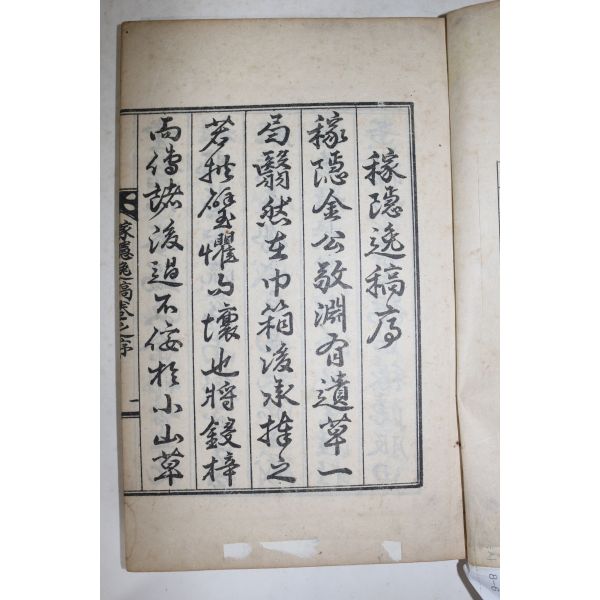 稼隱逸稿序
稼隱金公敬淵有遺草一
局翳然在巾箱後承捧之
若拱璧懼與壞也將鋟梓
而傳諸後過不佞於小山草
稼隱逸稿卷之序
一
8-8